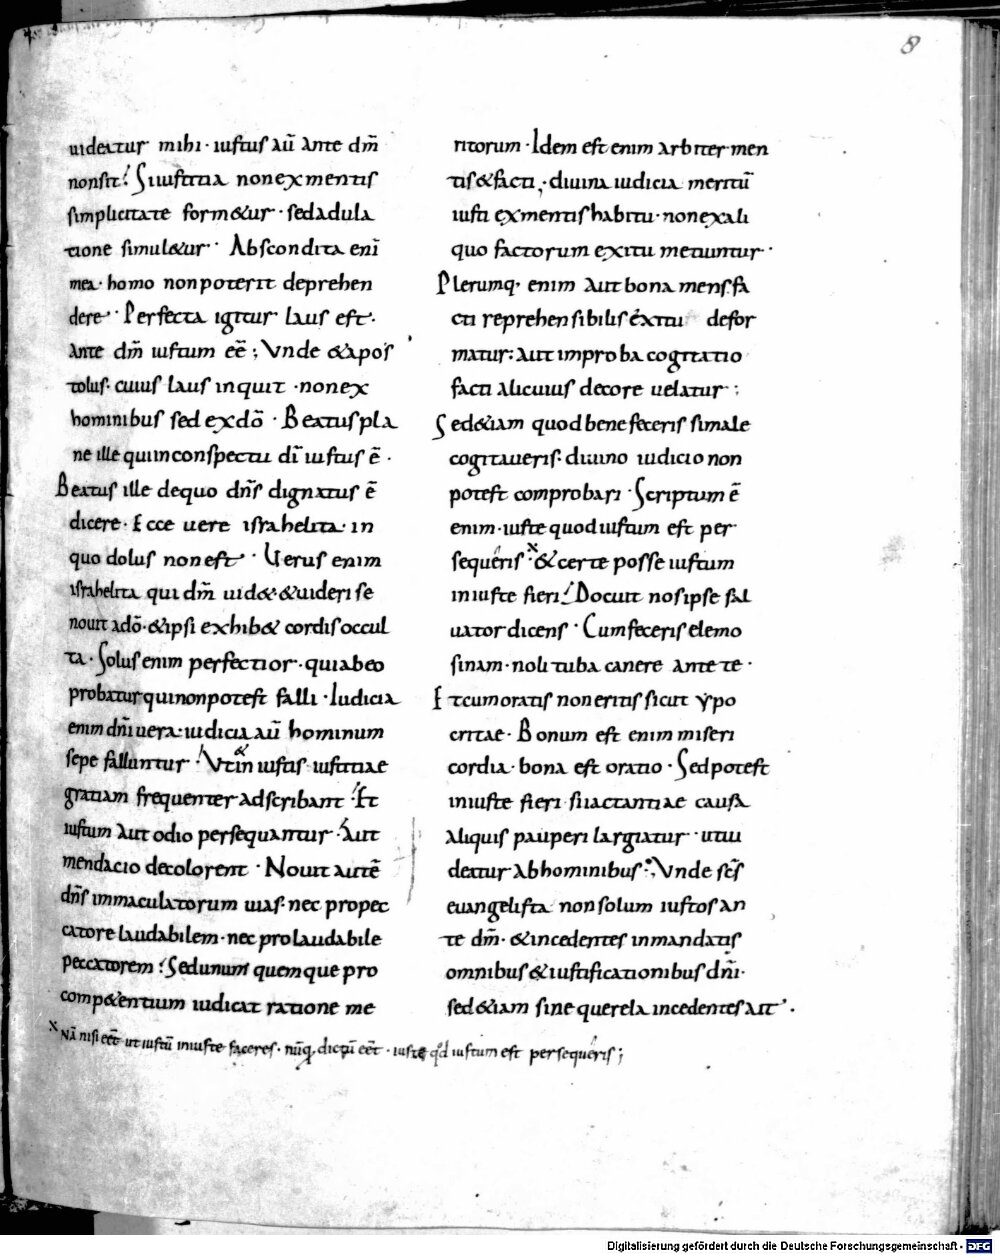 8
uideatur mihi · iustus aū ante dm̄
non sit? Si iustitia non ex mentis
simplicitate form&ur · sed adula
tione simul&ur · Abscondita enī
mea · homo non poterit deprehen
dere · Perfecta igitur laus est ·
Ante dm̄ iustum eē ; Vnde & apos
tolus · cuius laus inquit · non ex
hominibus sed ex dō · Beatus pla
ne ille qui in conspectu dī iustus ē ·
Beatus ille de quo dn̄s dignatus ē
dicere · Ecce uere israhelita · in
quo dolus non est · Uerus enim
israhelita qui dm̄ uid& & uideri se
nouit a dō · & ipsi exhib& cordis occul
ta · Solus enim perfectior · qui ab eo
probatur qui non potest falli · Iudicia
enim dn̄i uera · iudicia aū hominum
sepe falluntur · Vt & in iustis iustitiae
gratiam frequenter adscribant · Et
iustum aut odio persequantur · Aut
mendacio decolorent · Nouit autē
dn̄s immaculatorum uias · nec propec
catore laudabilem · nec pro laudabile
peccatorem · Sed unum quemque pro
comp&entium iudicat ratione me
ritorum · Idem est enim arbiter men
tis & facti ; diuina iudicia meritū
iusti ex mentis habitu · non ex ali
quo factorum exitu metiuntur ·
Plerumq· enim aut bona mens fa
cti reprehensibilis exitu defor
matur : aut improba cogitatio
facti alicuius decore uelatur ;
Sed &iam quod bene feceris si male
cogitaueris · diuino iudicio non
potest comprobari · Scriptum ē
enim · iuste quod iustum est per
sequeris x & certe posse iustum
iniuste fieri · Docuit nos ipse sal
uator dicens · Cum feceris elemo
sinam · noli tuba canere ante te ·
Et cum oratis non eritis sicut ypo
critae · Bonum est enim miseri
cordia · bona est oratio · Sed potest
iniuste fieri · si iactantiae causa
aliquis pauperi largiatur · ut ui
deatur ab hominibus ; Vnde sc̄s
euangelista non solum iustos an
te dm̄ · & incedentes in mandatis
omnibus & iustificationibus dn̄i ·
sed &iam sine querela incedentes ait ·
x Nā nisi eēt ut iustū iniuste faceres · nūq dictū eēt · iuste qd iustum est persequeris ;
Digitalisierung gefördert durch die Deutsche Forschungsgemeinschaft - DFG